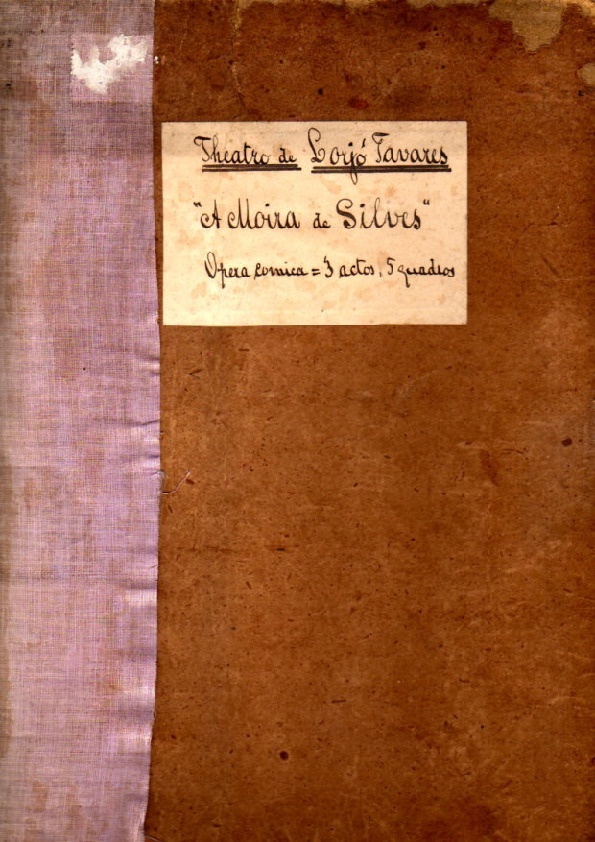 Theatro de Lorjó Tavares
"A Moira de Silves"
Opera comica = 3 actos, 5 quadros